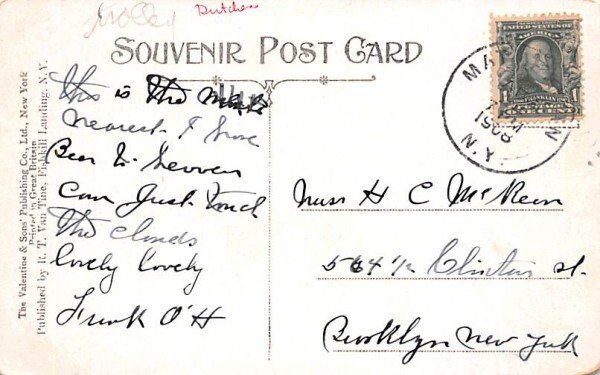 Dutchess
SOUVENIR POST CARD
The Valentine & Sons' Publishing Co., Ltd., New York
Printed in Great Britain
Published by R. T. Van Tine, Fishkill Landing, N.Y.
This is the
nearest I have
Been to Heaven
Can Just Touch
The Clouds
lovely lovely
Frank O'H
Miss H C McKeen
564 1/2 Clinton st.
Brooklyn New York
MA
1908
N.Y.
FRANKLIN